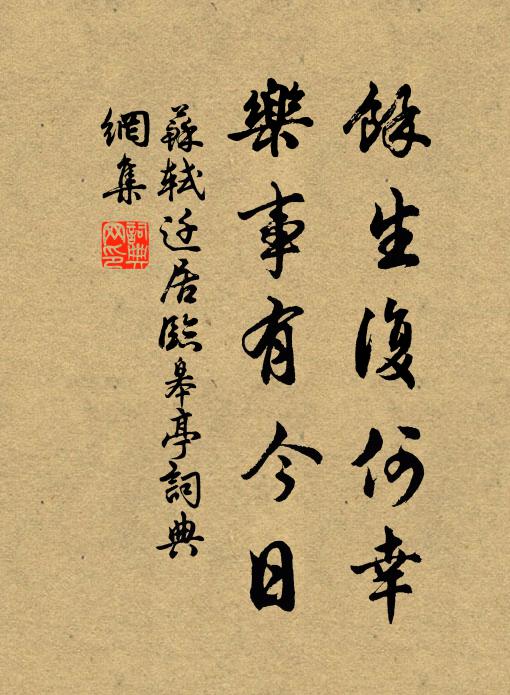 餘生復何幸
樂事有今日
蘇軾迁居臨皋亭詞典
網集
詞典
网印